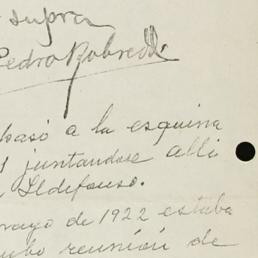 supra
Pedro Robredo.
pasó a la esquina
juntandose alli
Ildefonso.
mayo de 1922 estaba
hubo reunión de